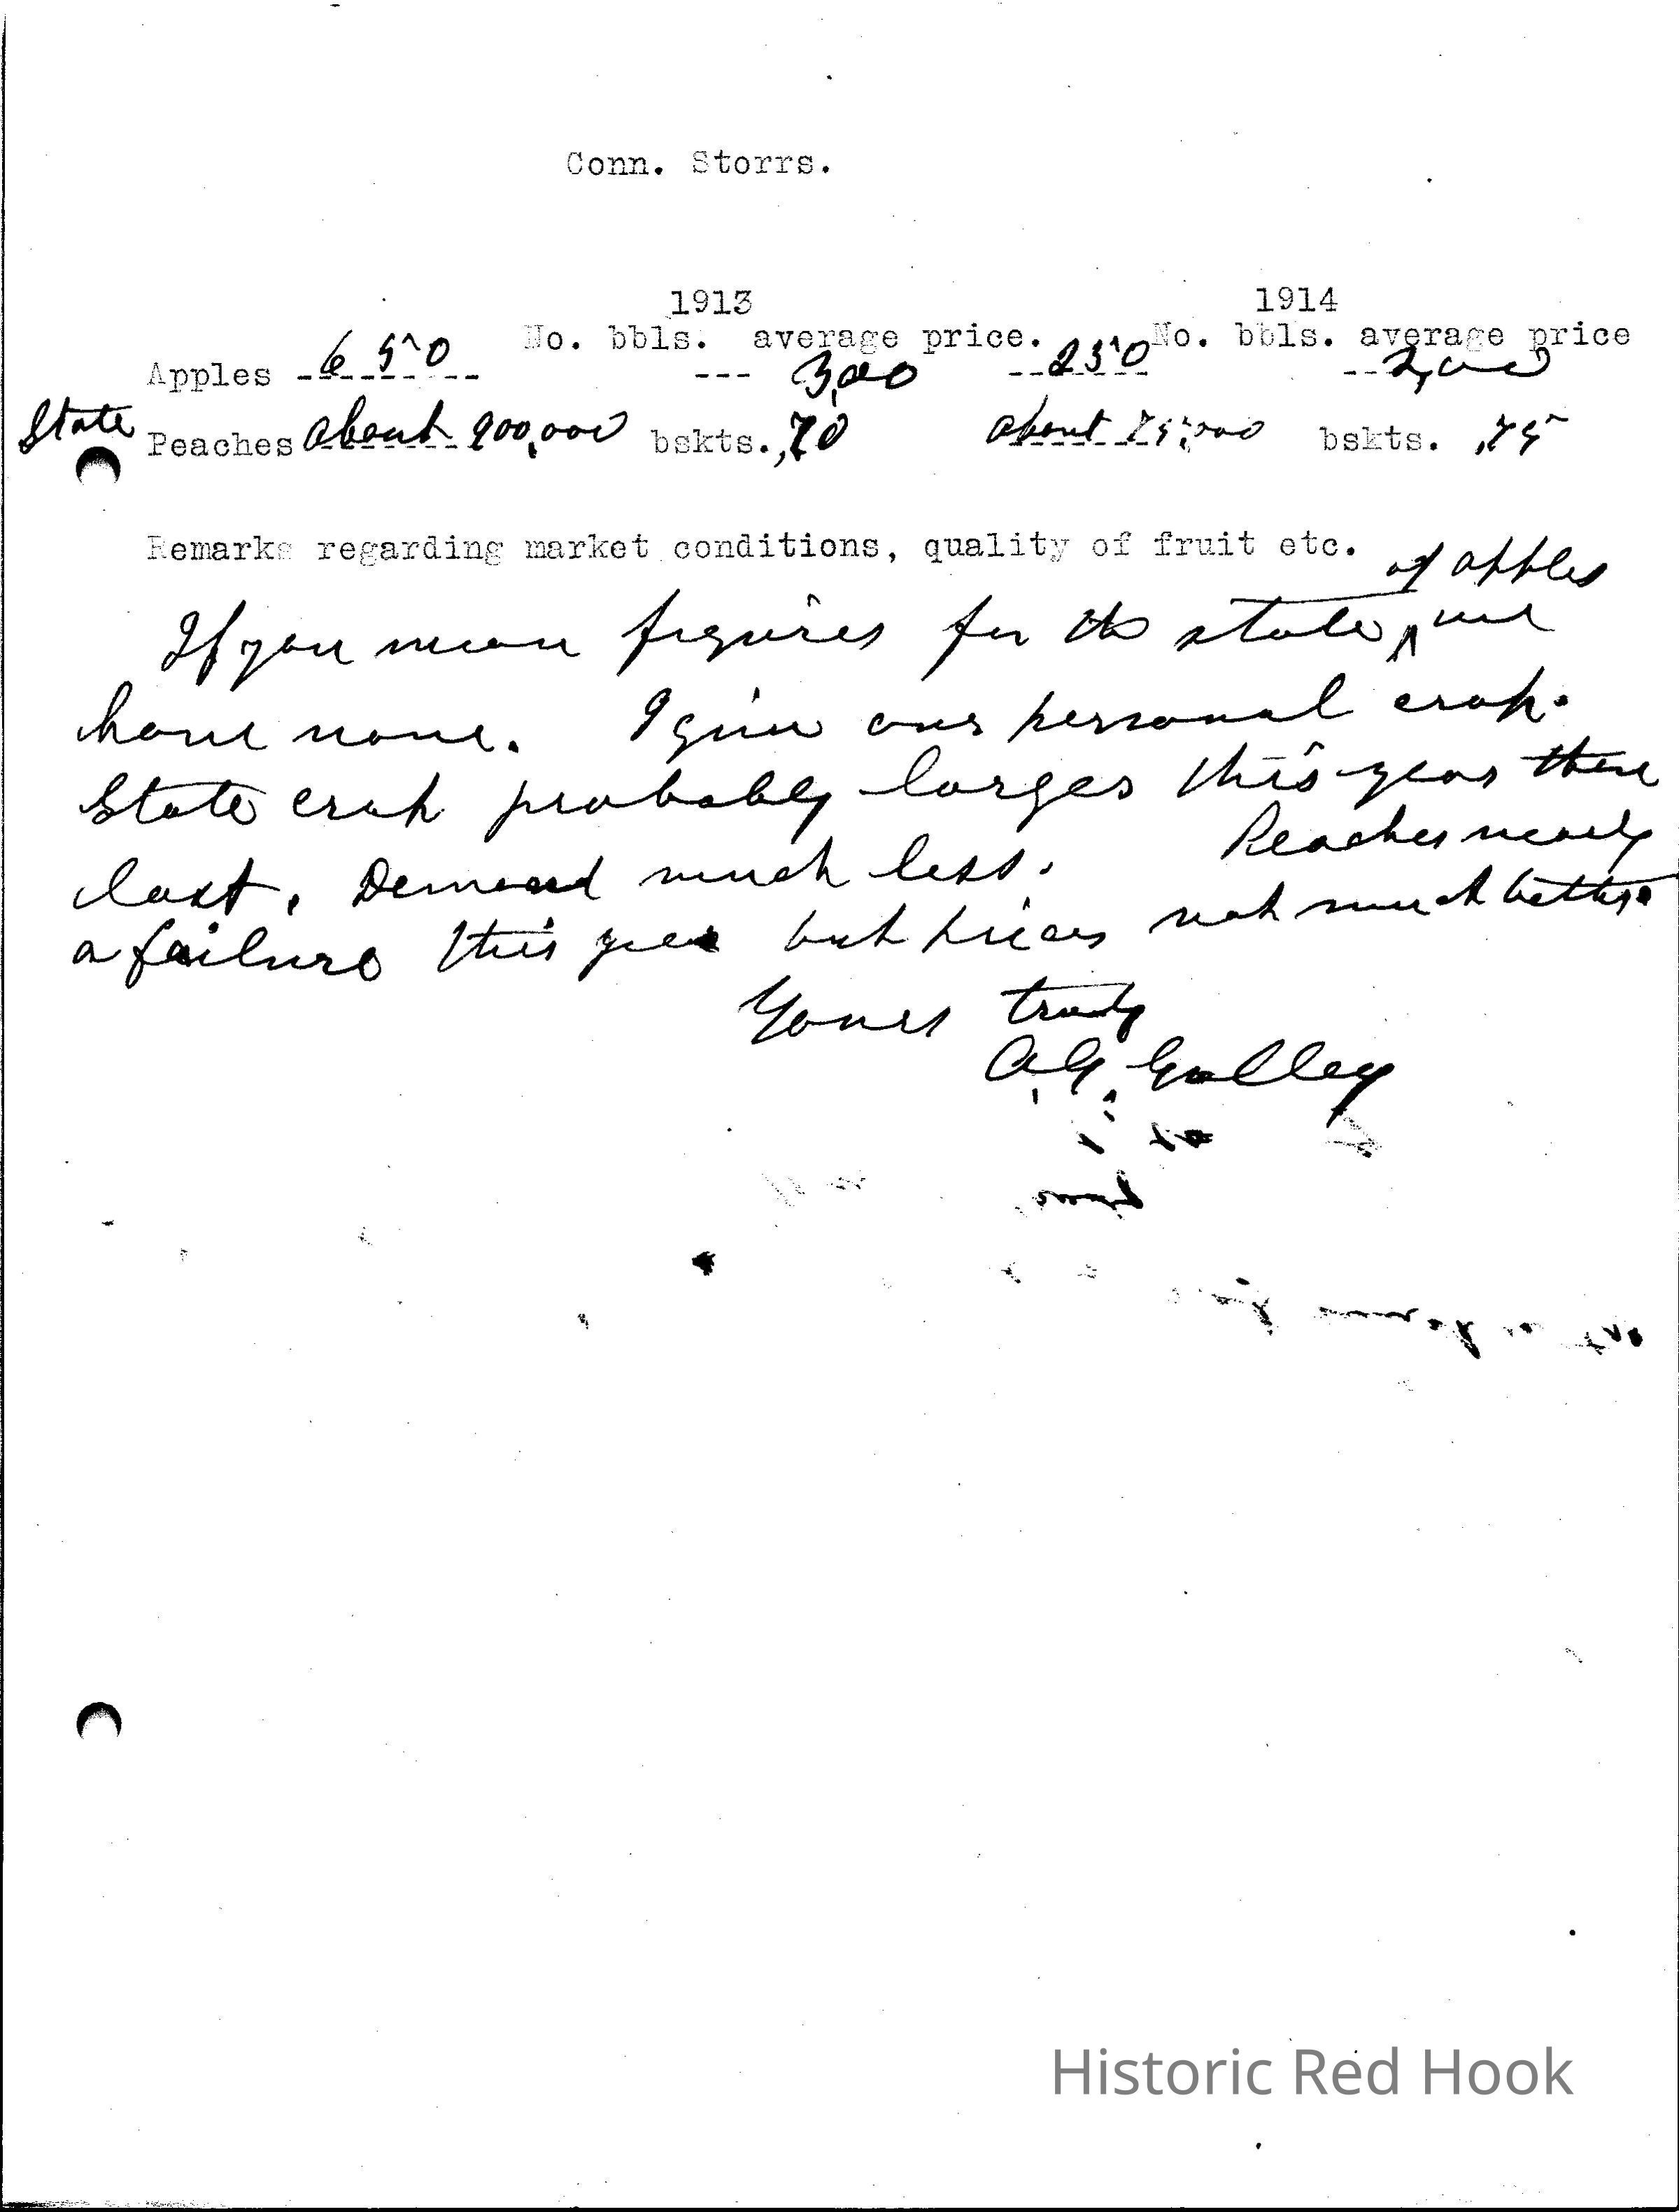 Conn. Storrs.
1913 1914
No. bbls. average price. No. bbls. average price
Apples 650 --- 3,00 250 2,00
State Peaches about 900,000 bskts. ,70 about 75,000 bskts. ,75
Remarks regarding market conditions, quality of fruit etc.
of apples
If you mean figures for the state, we
have none. I give our personal crop.
State crop probably larger this year then
last. Demand much less. Peaches nearly
a failure this year but prices not much better.
Yours truly
A.G. Gulley
Historic Red Hook